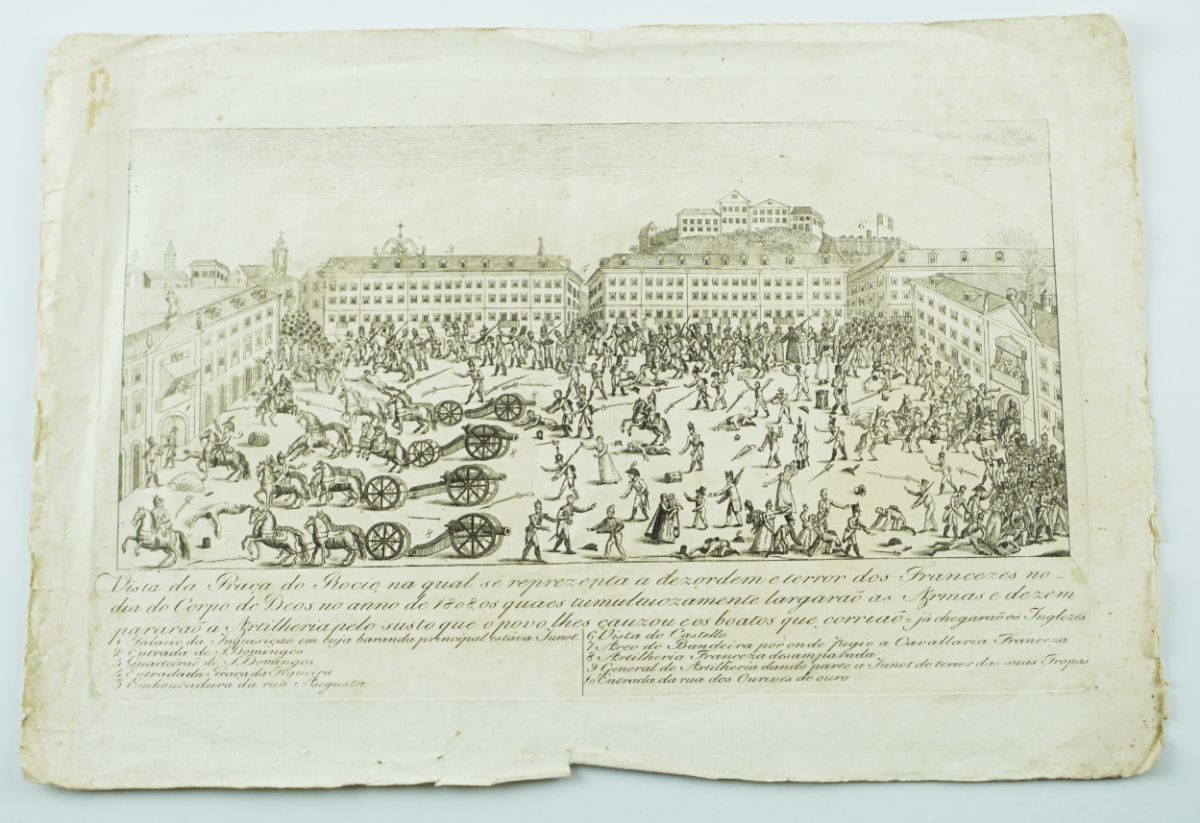 Vista da Praça do Rocio, na qual se reprezenta a dezordem e terror dos Francezes no-
dia do Corpo de Deos no anno de 1808, os quaes tumultuozamente largaraõ as Armas e dezem
pararaõ a Artilheria pelo susto que o povo lhes cauzou e os boatos que corriaõ = já chegaraõ os Inglezes
1 Palacio da Inquisiçaõ em cuja baranda principal estáva Junot
2 Entrada de S. Domingos
3 Quarteiraõ de S. Domingos
4 Entrada da Praça da Figueira
5 Embocadura da rua Augusta
6 Vista do Castello
7 Arco do Bandeira por onde fugio a Cavallaria Franceza
8 Artilheria Franceza desamparada
9 General de Artilheria dando parte a Junot do terror das suas Tropas
10 Entrada da rua dos Ourives do ouro